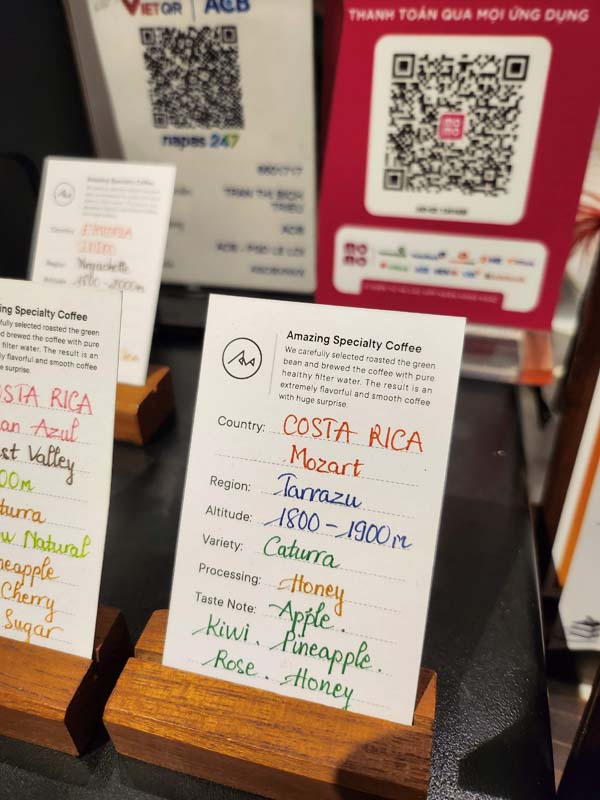 VIETQR | ACB
napas 247
THANH TOÁN QUA MỌI ỨNG DỤNG
mo
mo
Amazing Specialty Coffee
Country: ETHIOPIA
Region: Yirgacheffe
Altitude: 1800-2000m
ng Specialty Coffee
fully selected roasted the green
d brewed the coffee with pure
filter water. The result is an
y flavorful and smooth coffee
e surprise.
OSTA RICA
an Azul
st Valley
00m
turra
w Natural
neapple
Cherry
Sugar
Amazing Specialty Coffee
We carefully selected roasted the green
bean and brewed the coffee with pure
healthy filter water. The result is an
extremely flavorful and smooth coffee
with huge surprise.
Country: COSTA RICA
Mozart
Region: Tarrazu
Altitude: 1800-1900m
Variety: Caturra
Processing: Honey
Taste Note: Apple.
Kiwi. Pineapple.
Rose. Honey